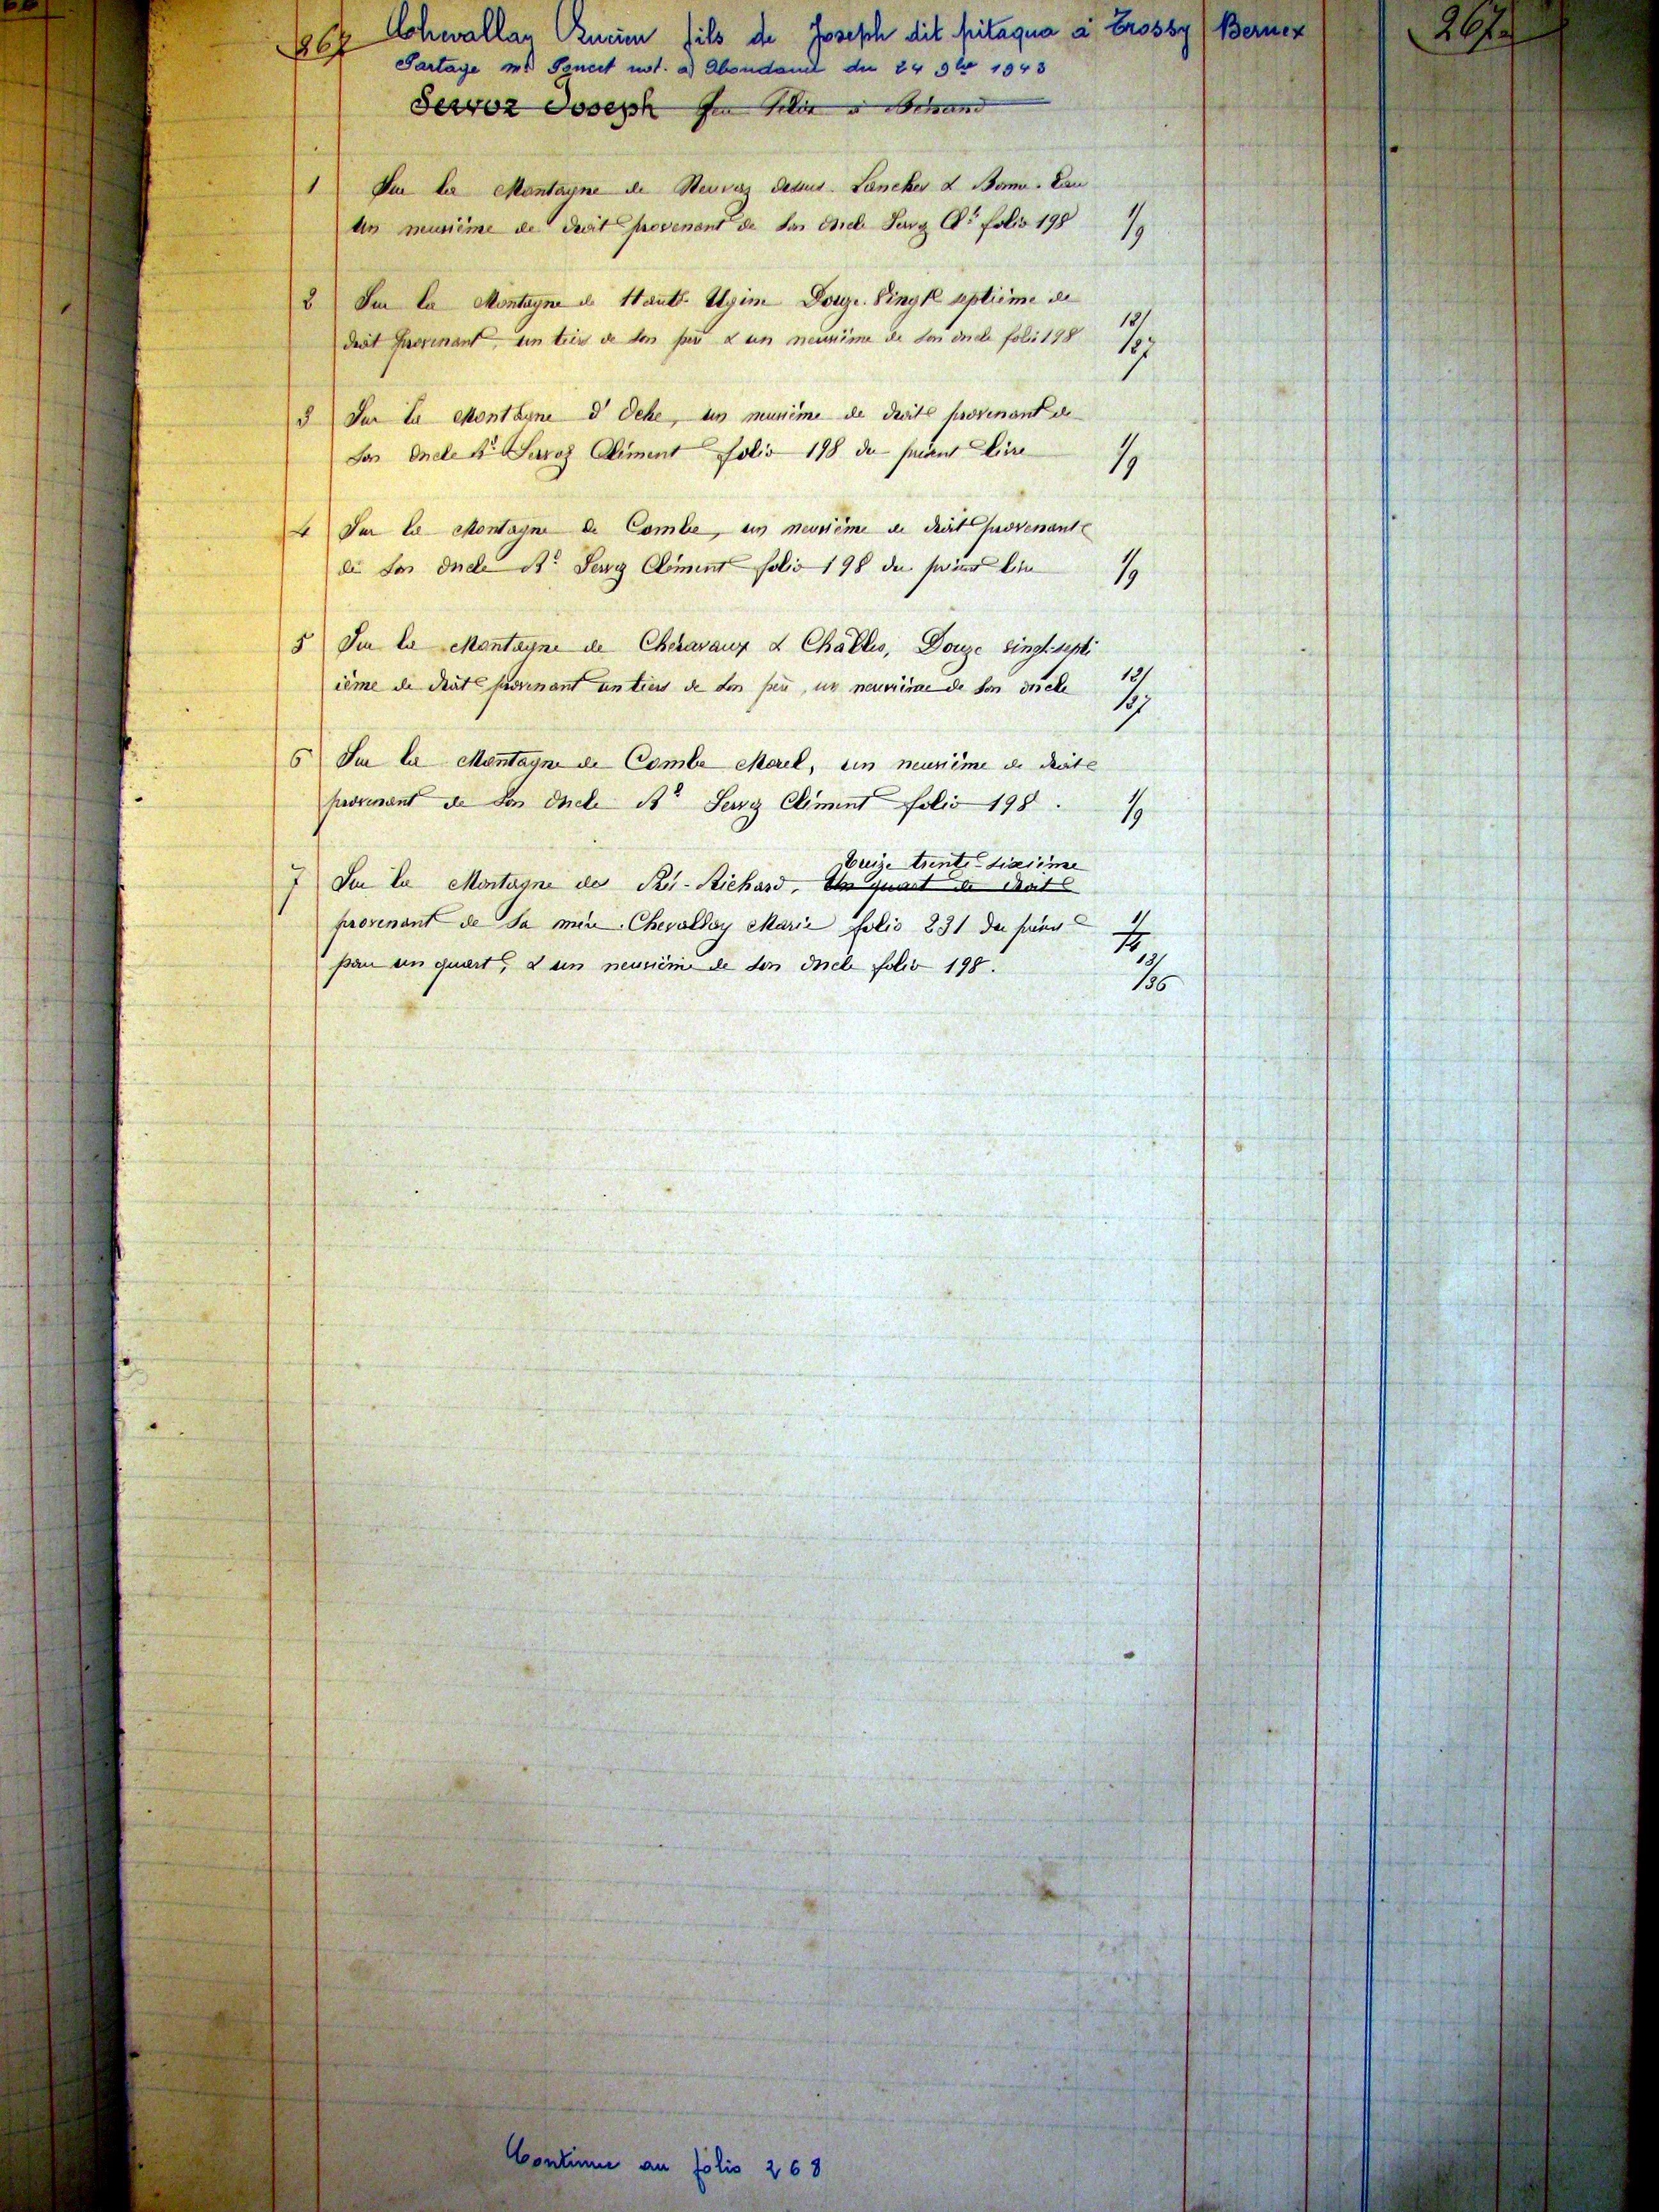 267 Chevallay Lucien fils de Joseph dit pitaqua à Trossy Bernex 267
Partage Me not. à Abondance du 24 9bre 1943
Servoz Joseph feu Félix à
1 Sur la Montagne de Neuvaz dessus Lancher &
Un neuvième de droit provenant de son oncle Servoz Ct folio 198 1/9
2 Sur la Montagne de Haute Ugine Douze Vingt septième de
droit provenant, un tiers de son père & un neuvième de son oncle folio 198 12/27
3 Sur la Montagne d'Oche, un neuvième de droit provenant de
son oncle Servoz Clément folio 198 du présent livre 1/9
4 Sur la Montagne de Combe, un neuvième de droit provenant
de son oncle Servoz Clément folio 198 du présent livre 1/9
5 Sur la Montagne de Cheravaux & Challes, Douze vingt-septi
ième de droit provenant un tiers de son père, un neuvième de son oncle 12/27
6 Sur la Montagne de Combe Morel, un neuvième de droit
provenant de son oncle Servoz Clément folio 198. 1/9
treize trente-sixième
7 Sur la Montagne de Pré-Richard, Un quart de droit
provenant de sa mère Chevallay Marie folio 231 du présent 1/4
pour un quart, & un neuvième de son oncle folio 198. 13/36
Continue au folio 268